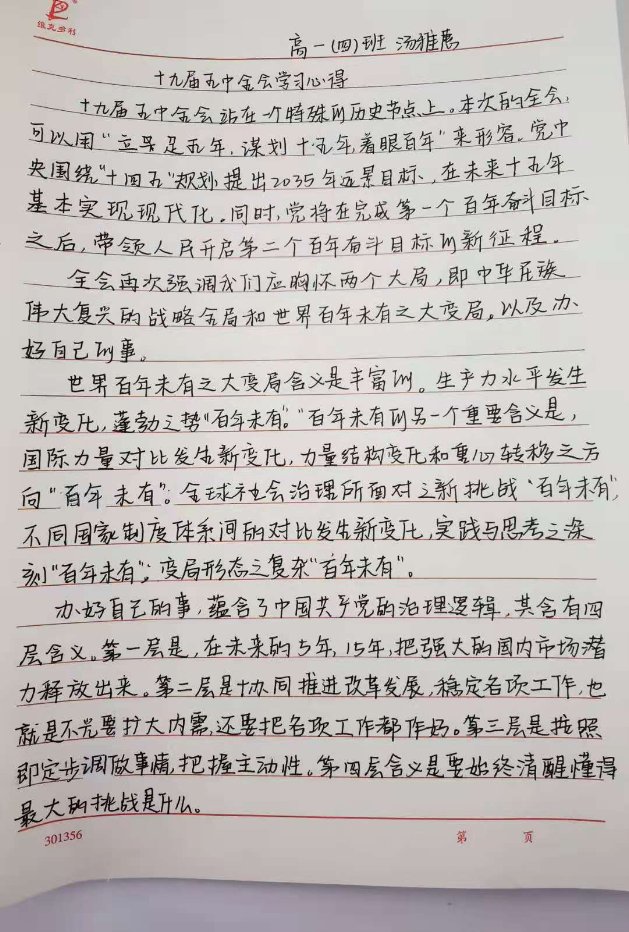 维克多利
高一(四)班 汤雅惠
十九届五中全会学习心得
十九届五中全会站在一个特殊的历史节点上。本次的全会,
可以用“立足五年,谋划十五年,着眼百年”来形容。党中
央围绕“十四五”规划,提出2035年远景目标,在未来十五年
基本实现现代化。同时,党将在完成第一个百年奋斗目标
之后,带领人民开启第二个百年奋斗目标的新征程。
全会再次强调我们应胸怀两个大局,即中华民族
伟大复兴的战略全局和世界百年未有之大变局。以及办
好自己的事。
世界百年未有之大变局含义是丰富的。生产力水平发生
新变化,蓬勃之势“百年未有”。“百年未有的另一个重要含义是,
国际力量对比发生新变化,力量结构变化和重心转移之方
向“百年未有”;全球社会治理所面对之新挑战“百年未有”,
不同国家制度体系间的对比发生新变化,实践与思考之深
刻“百年未有”;变局形态之复杂“百年未有”。
办好自己的事,蕴含了中国共产党的治理逻辑,其含有四
层含义。第一层是,在未来的5年,15年,把强大的国内市场潜
力释放出来。第二层是协同推进改革发展,稳定各项工作,也
就是不光要扩大内需,还要把各项工作都作好。第三层是按照
即定步调做事情,把握主动性。第四层含义是要始终清醒懂得
最大的挑战是什么。
301356
第 页